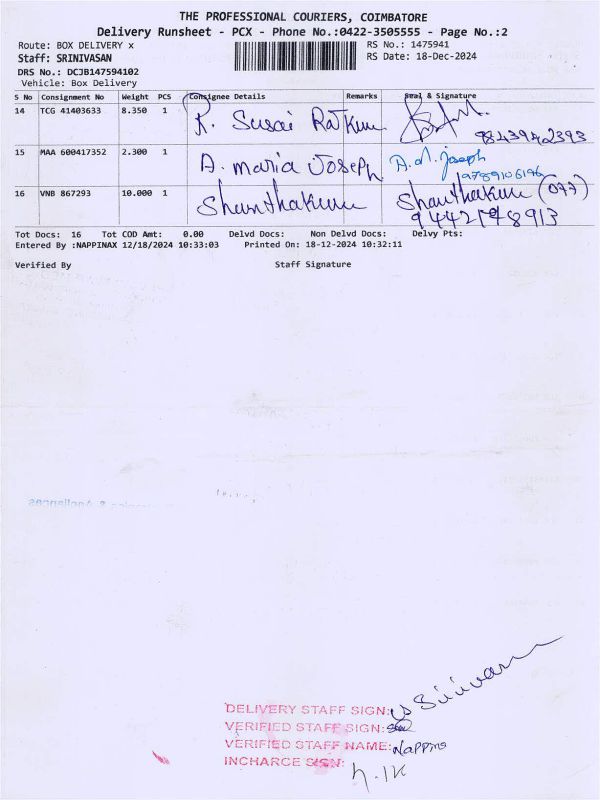 THE PROFESSIONAL COURIERS, COIMBATORE
Delivery Runsheet - PCX - Phone No.:0422-3505555 - Page No.:2
Route: BOX DELIVERY x RS No.: 1475941
Staff: SRINIVASAN RS Date: 18-Dec-2024
DRS No.: DCJB147594102
Vehicle: Box Delivery
S No Consignment No Weight PCS Consignee Details Remarks Seal & Signature
14 TCG 41403633 8.350 1 R. Susai Rajkum 9843942393
15 MAA 600417352 2.300 1 A. maria Joseph A. M. Joseph
9789106196
16 VNB 867293 10.000 1 Shanthakum Shanthakum (077)
9442178913
Tot Docs: 16 Tot COD Amt: 0.00 Delvd Docs: Non Delvd Docs: Delvy Pts:
Entered By :NAPPINAX 12/18/2024 10:33:03 Printed On: 18-12-2024 10:32:11
Verified By Staff Signature
DELIVERY STAFF SIGN:
VERIFIED STAFF SIGN:
VERIFIED STAFF NAME: Nappina
INCHARGE SIGN: